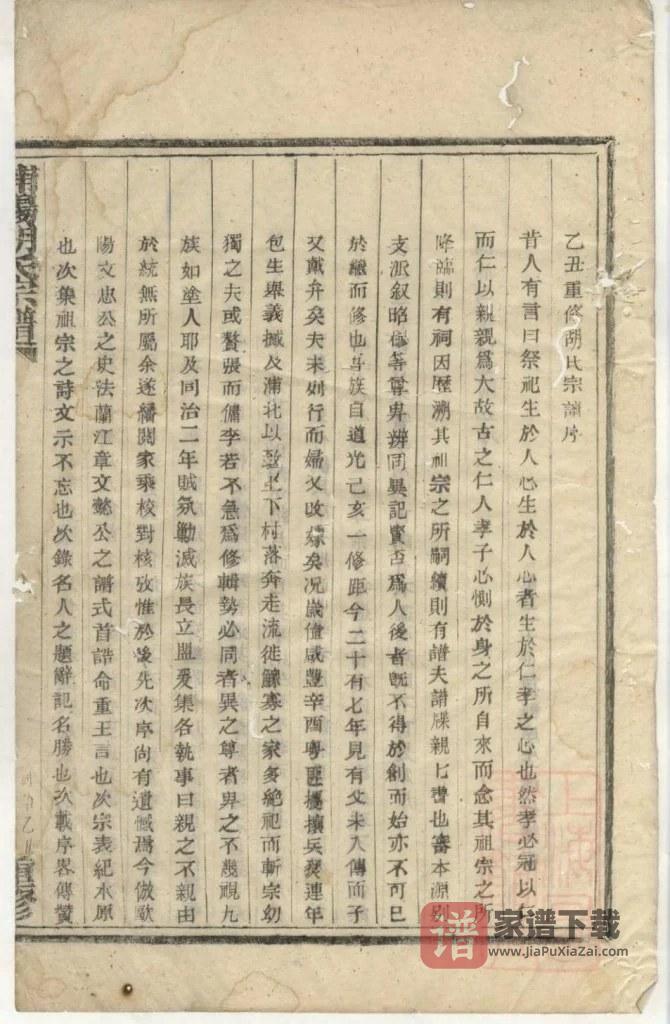 乙丑重修胡氏宗譜序
昔人有言曰祭祀生於人心生於人心者生於仁孝之心也然孝必冠以仁
而仁以親親爲大故古之仁人孝子必惻於身之所自來而念其祖宗之所
降臨則有祠因歷溯其祖宗之所嗣續則有譜夫譜牒親上書也審本源別
支派叙昭穆等尊卑辨同異記實否爲人後者旣不得於創而始亦不可已
於繼而修也吾族自道光己亥一修距今二十有七年見有父未入傳而子
又戴弁矣夫未列行而婦又改嫁矣况歲值咸豐辛酉粤匪擾攘兵燹連年
包生舉義撼及浦北以致上下村落奔走流徙鰥寡之家多絶祀而斬宗幼
獨之夫或贅張而傭李若不急爲修輯勢必同者異之尊者卑之不幾視九
族如塗人耶及同治二年賊氛勦滅族長立盟爰集各執事曰親之不親由
於統無所屬余遂繙閱家乘校對核攷惟於後先次序尚有遺憾爲今倣歐
陽文忠公之史法蘭江章文懿公之譜式首誥命重王言也次宗表紀水原
也次集祖宗之詩文示不忘也次錄名人之題辭記名勝也次載序畧傳贊
浦陽胡氏宗譜
乙丑
重修
譜 家谱下载
www.JiaPuXiaZai.com